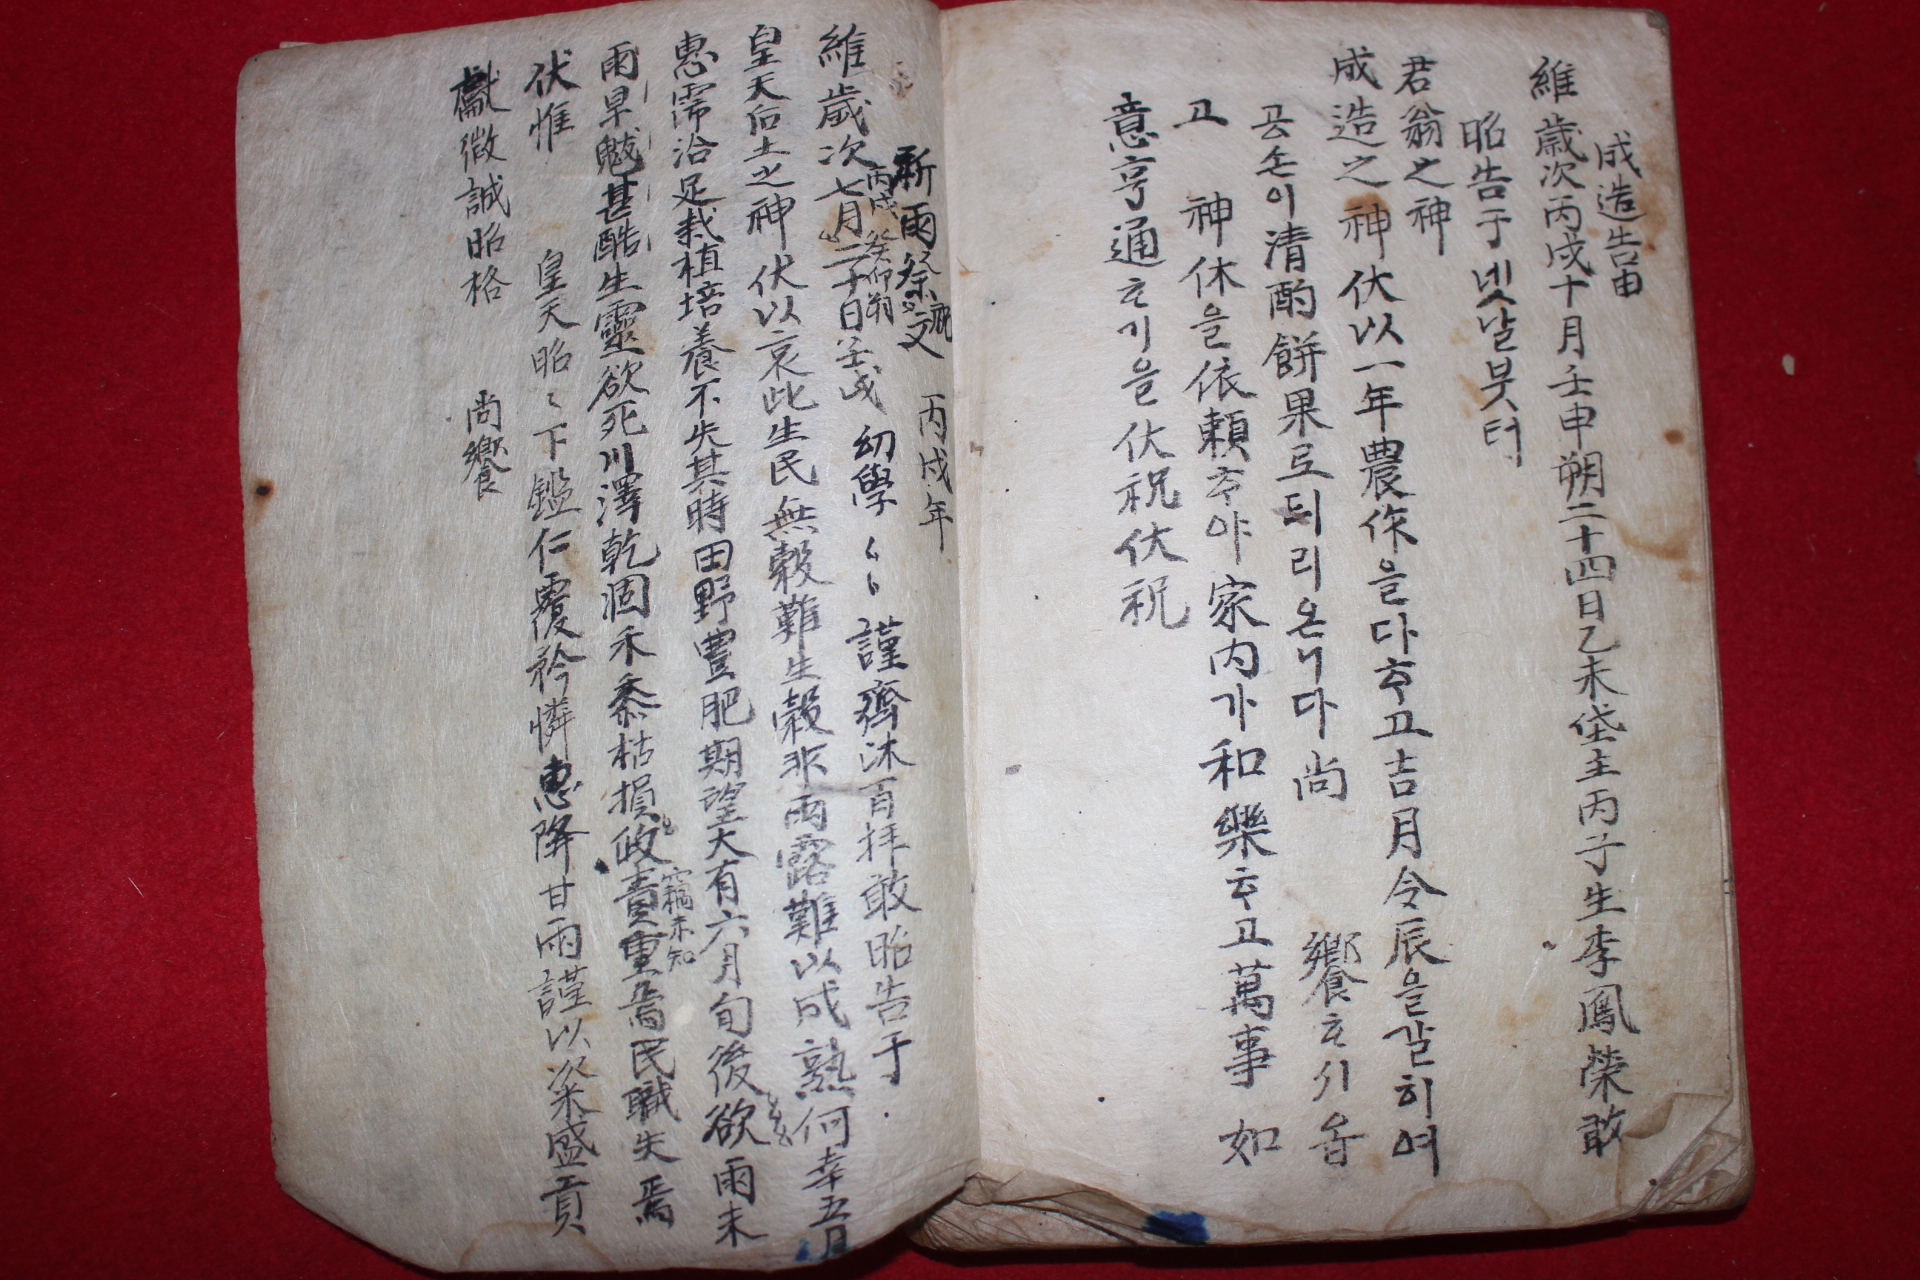 成造告由
維歲次丙戌十月壬申朔二十四日乙未垈主丙子生李鳳榮敢
昭告于녯날븟터
君翁之神
成造之神伏以一年農作을다ᄒᆞ고吉月令辰을갈히여
공손이清酌餠果로듸리온니다尚饗ᄒᆞ시옵
고神休을依賴ᄒᆞ야家內가和樂ᄒᆞ고萬事如
意亨通ᄒᆞ기을伏祝伏祝
祈雨祭文 祝 丙戌年
維歲次七月二十日壬戌幼學 謹齊沐百拜敢昭告于
丙戌 癸卯朔
皇天后土之神伏以哀此生民無穀難生穀非雨露難以成熟何幸五月
惠霈洽足栽植培養不失其時田野豊肥期望大有六月旬後欲雨未
雨旱魃甚酷生靈欲死川澤乾涸禾黍枯損政責重焉民職失焉
竊未知
伏惟皇天昭〻下鑑仁覆矜憐惠降甘雨謹以粢盛貢
獻微誠昭格尚饗